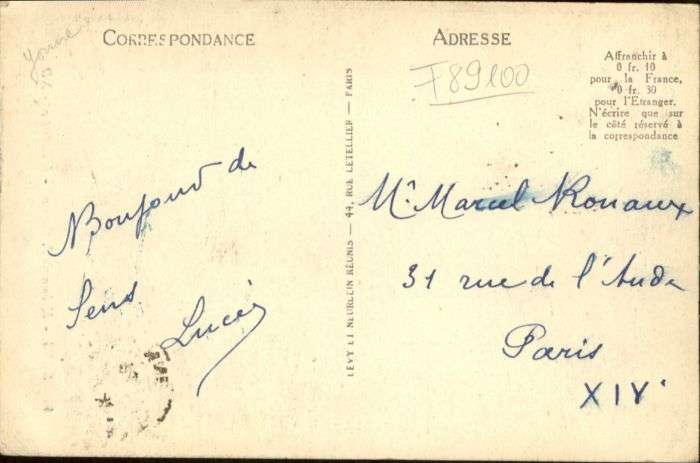 Yonne
CORRESPONDANCE
ADRESSE
F89100
Affranchir à
0 fr. 10
pour la France,
0 fr. 30
pour l'Etranger.
N'écrire que sur
le côté réservé à
la correspondance
LEVY ET NEURDEIN RÉUNIS — 44, RUE LETELLIER — PARIS
Bonjour de
Sens
Lucie
Mr Marcel Rouaux
31 rue de l'Aude
Paris
XIVe